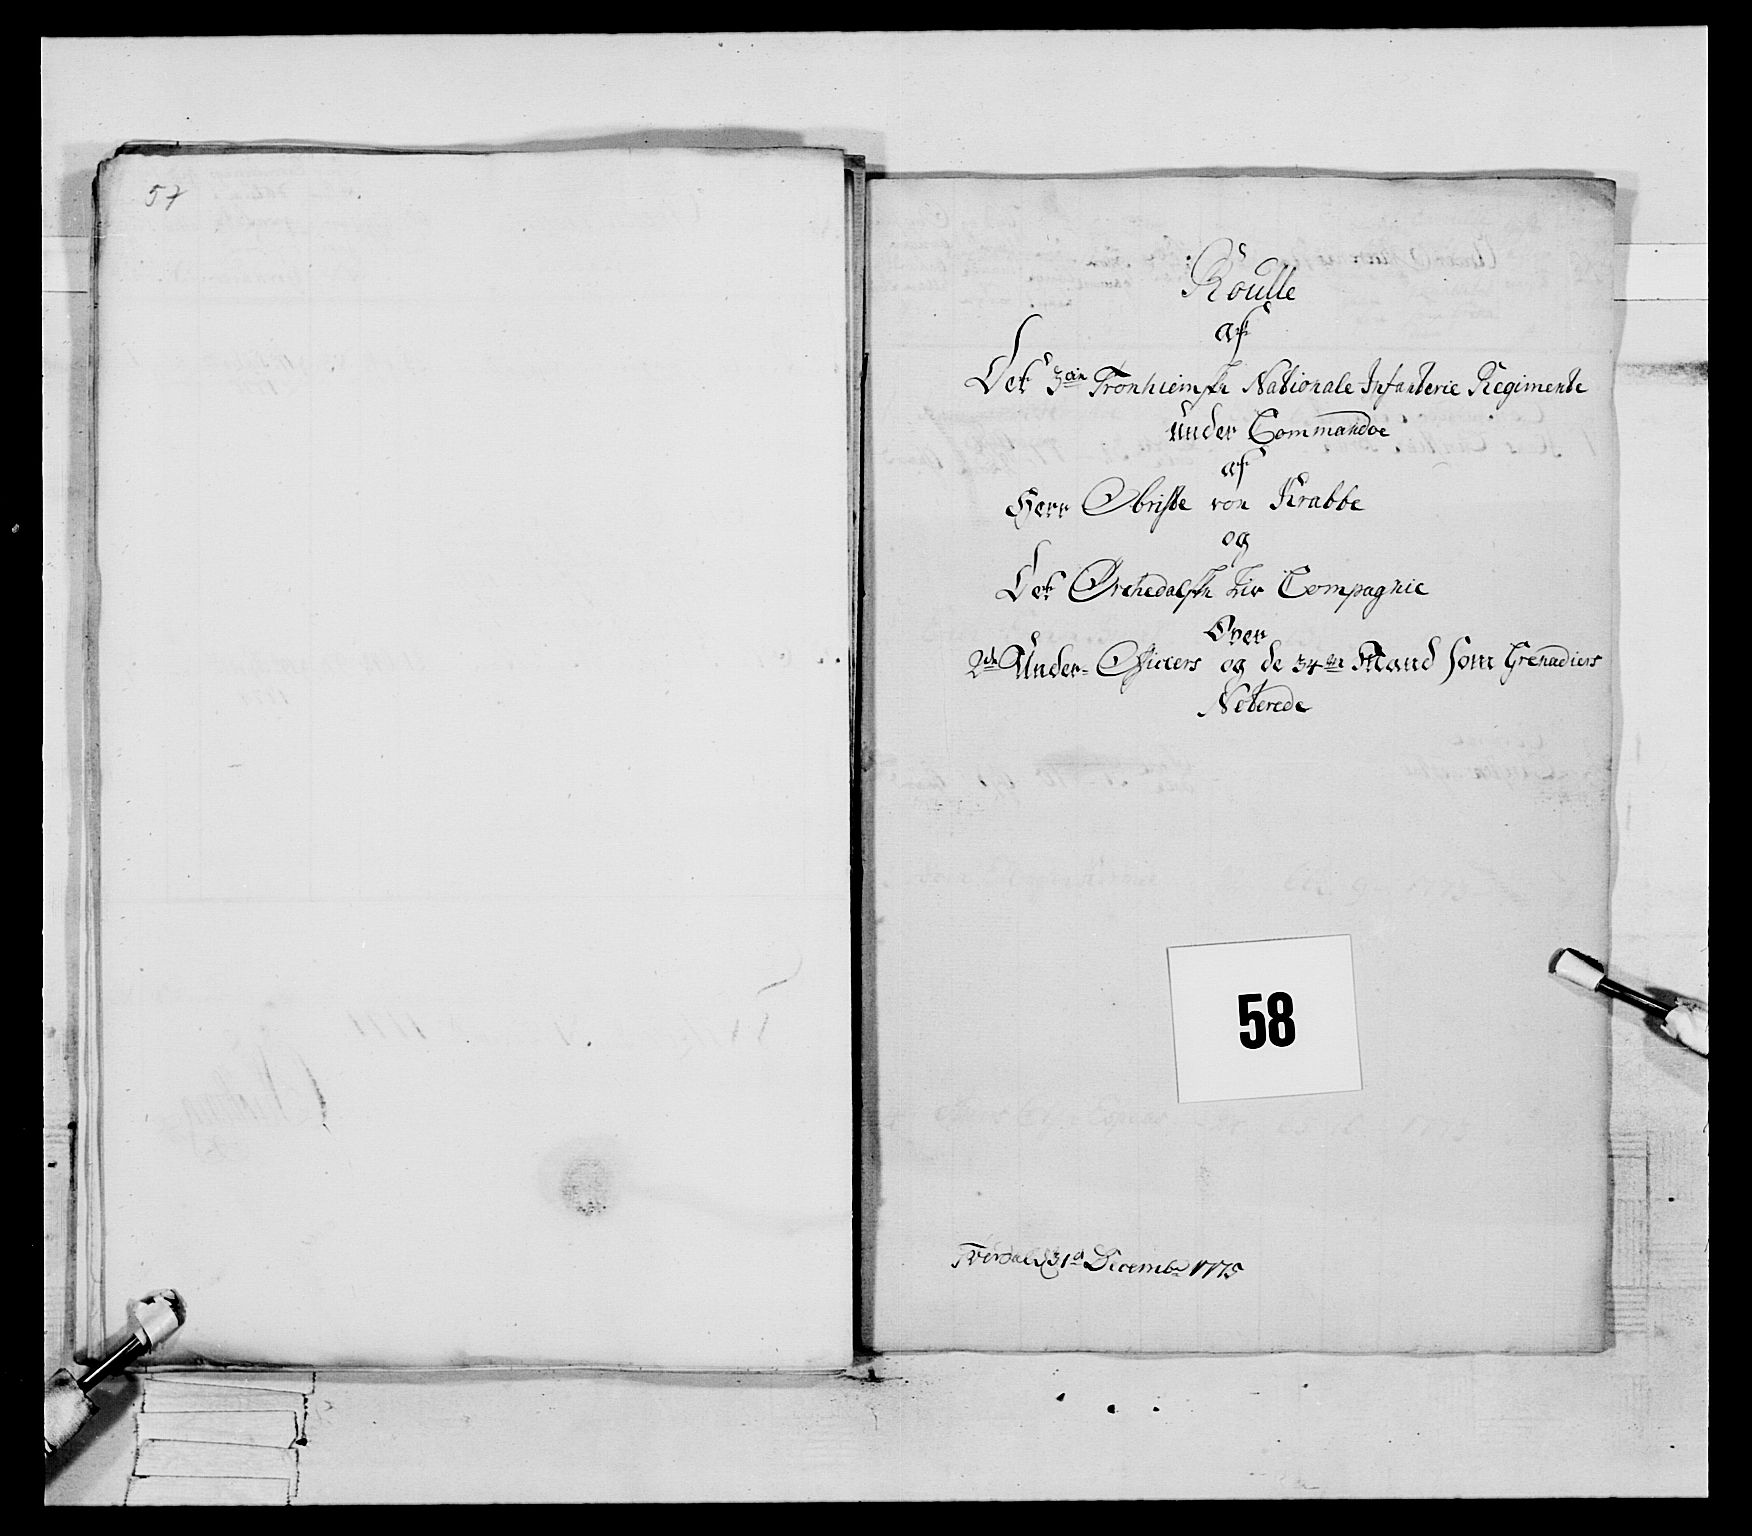 57
Roulle
af
Det 3die Tronhiemske Nationale Infanterie Regimente
under Commandoe
af
Herr Obriste von Krabbe
og
Det Ørchedalske Liv Compagnie
Over
2de Under-Officiers og de 34re Mand som Grenadiers
Noterede
58
31te Decembr 1775